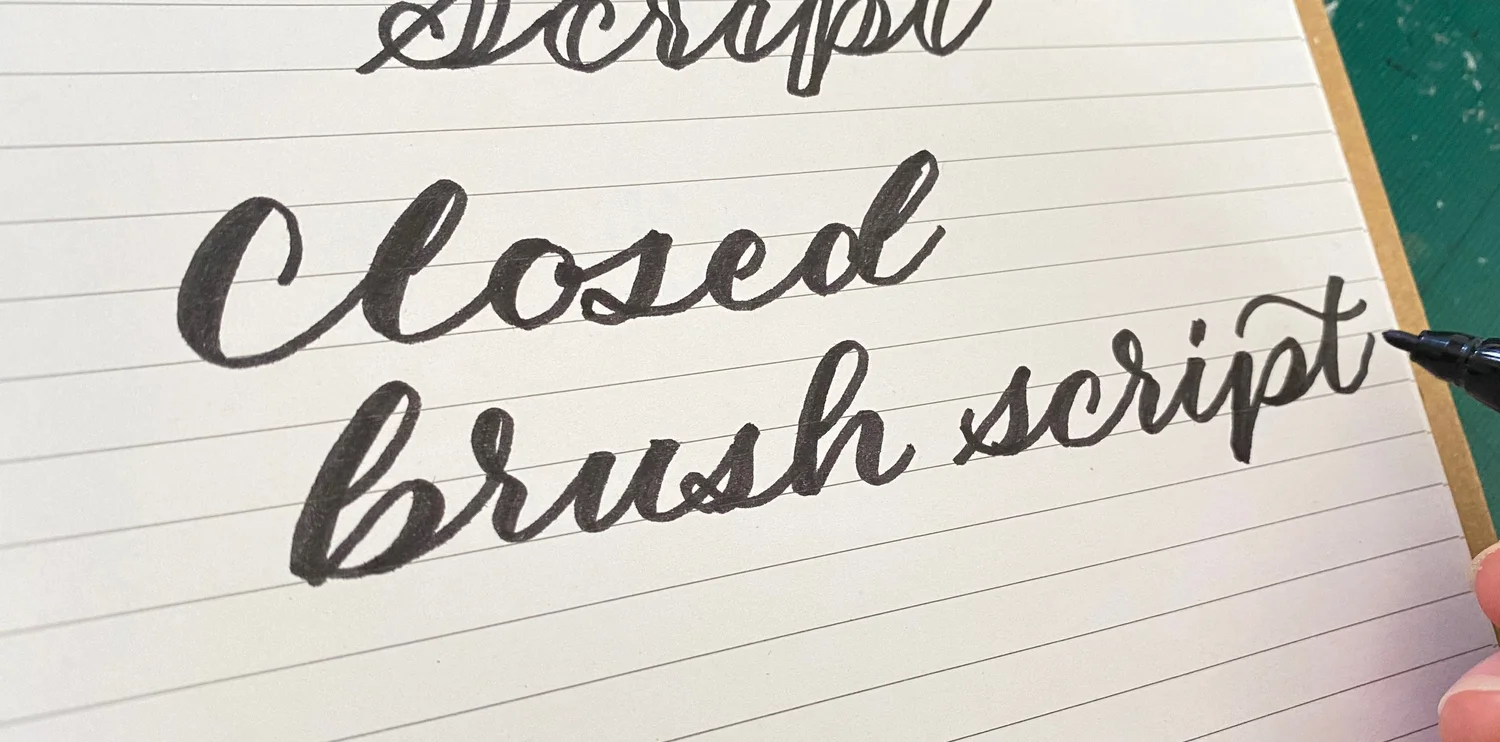 script
Closed
brush script